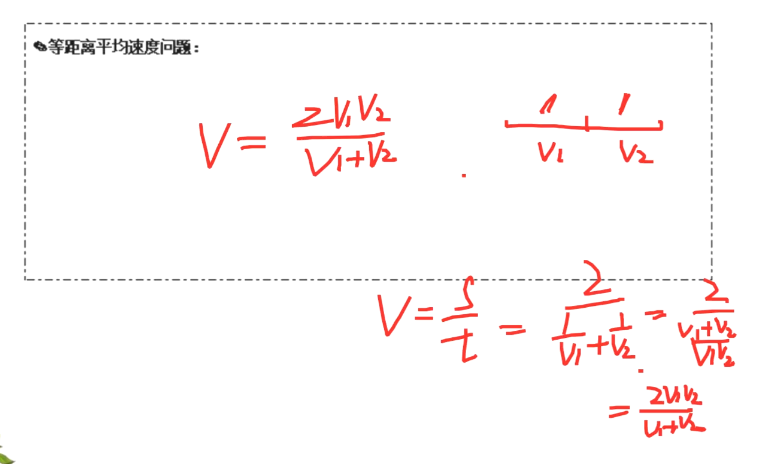 等距离平均速度问题：
V = 2V₁V₂/(V₁+V₂)
1 1
V₁ V₂
V = S/t = 2/(1/V₁ + 1/V₂) = 2/((V₁+V₂)/(V₁V₂))
= 2V₁V₂/(V₁+V₂)